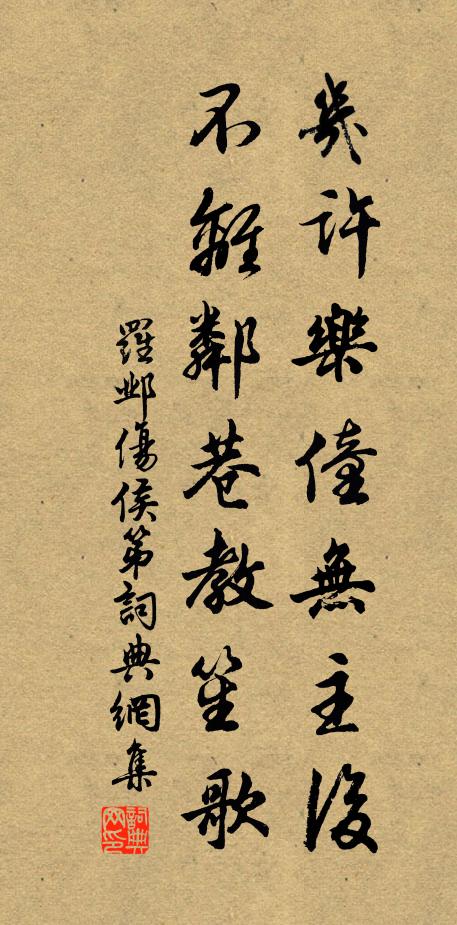 幾許樂僮無主後
不離鄰巷教笙歌
羅鄴傷侯第詞典網集
詞典網印